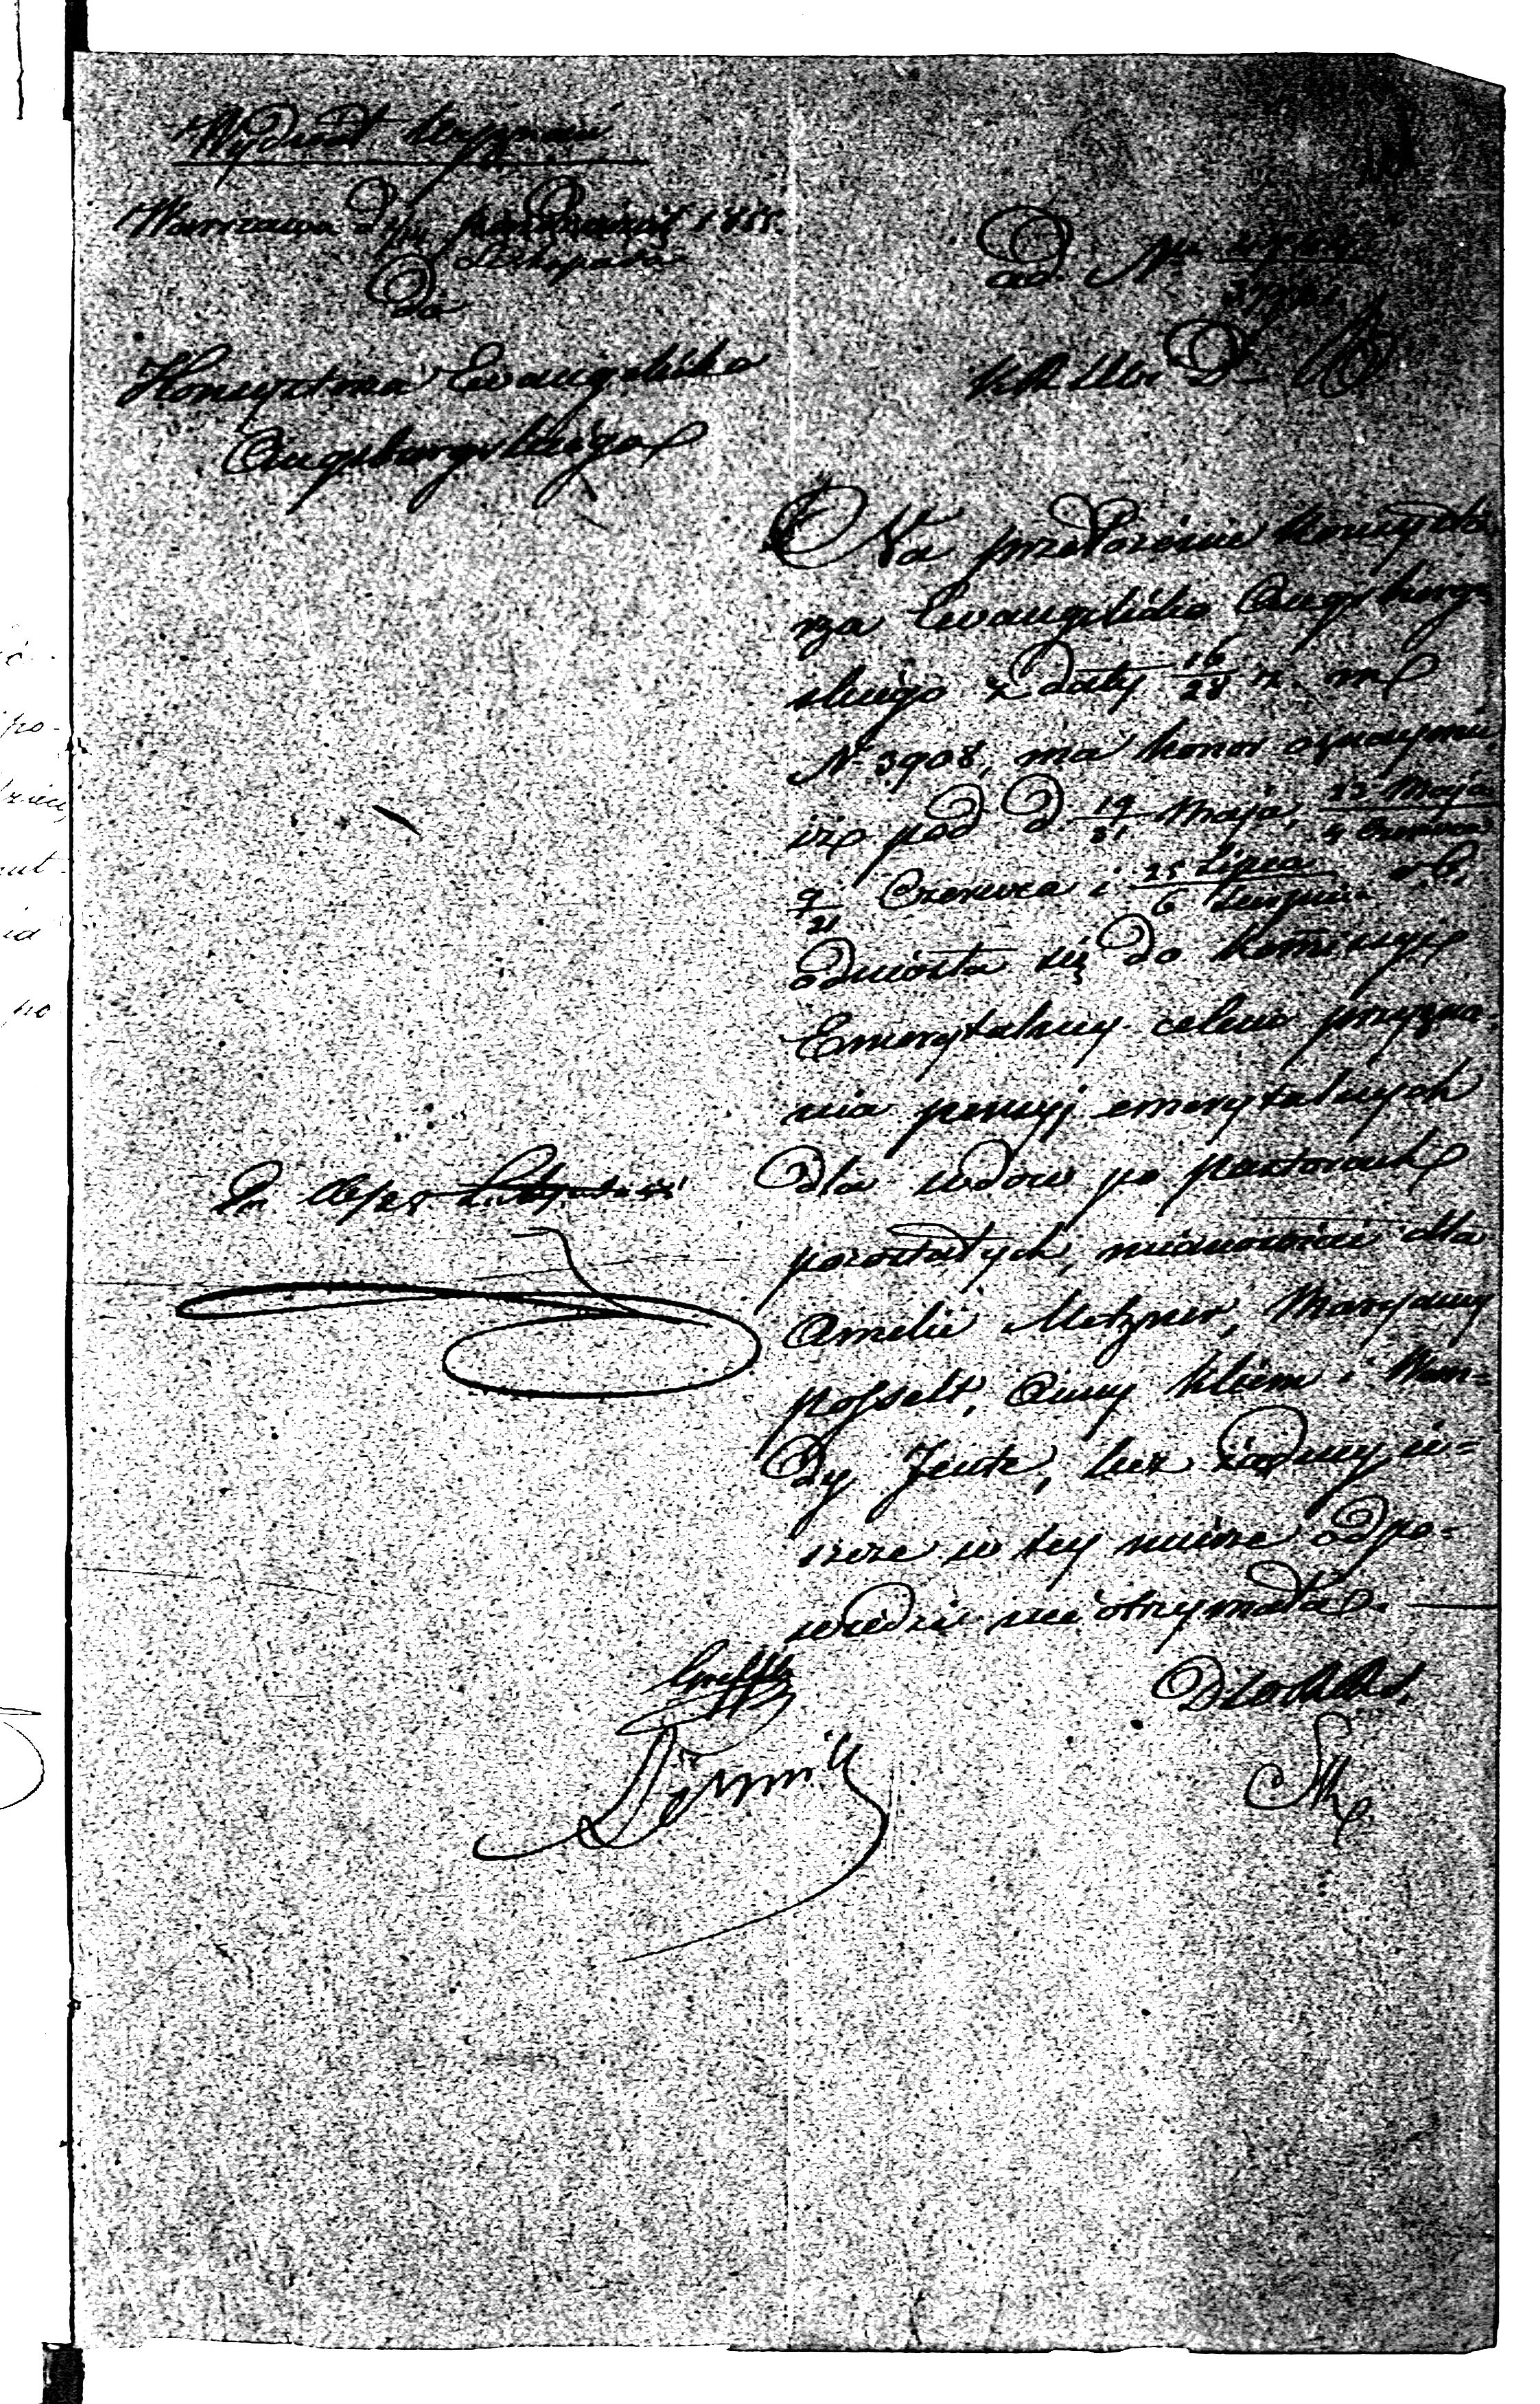 Wydział Wyznań
Warszawa d. Października 1855.
Listopada
Do
Konsystorza Ewangelicko
Augsburgskiego
ad. Nr
K R
Na przełożenie Konsysto
rza Ewangelicko Augsburg
skiego z daty 16/28 z. m.
N 3908, ma honor oznaymić
iż pod d. 19/31 Maja, 23 Maja/4 Czerwca
9/21 Czerwca i 25 Lipca/6 Sierpnia r.b.
odniosła się do Kommissyi
Emerytalney celem przyzna
nia pensyj emerytalnych
dla wdów po pastorach
pozostałych, mianowicie dla
Amelii Metzner, Maryanny
Posselt, Anny Kliem i Wan=
dy Jentz, lecz żadney je=
szcze w tey mierze odpo=
wiedzi nie otrzymała.